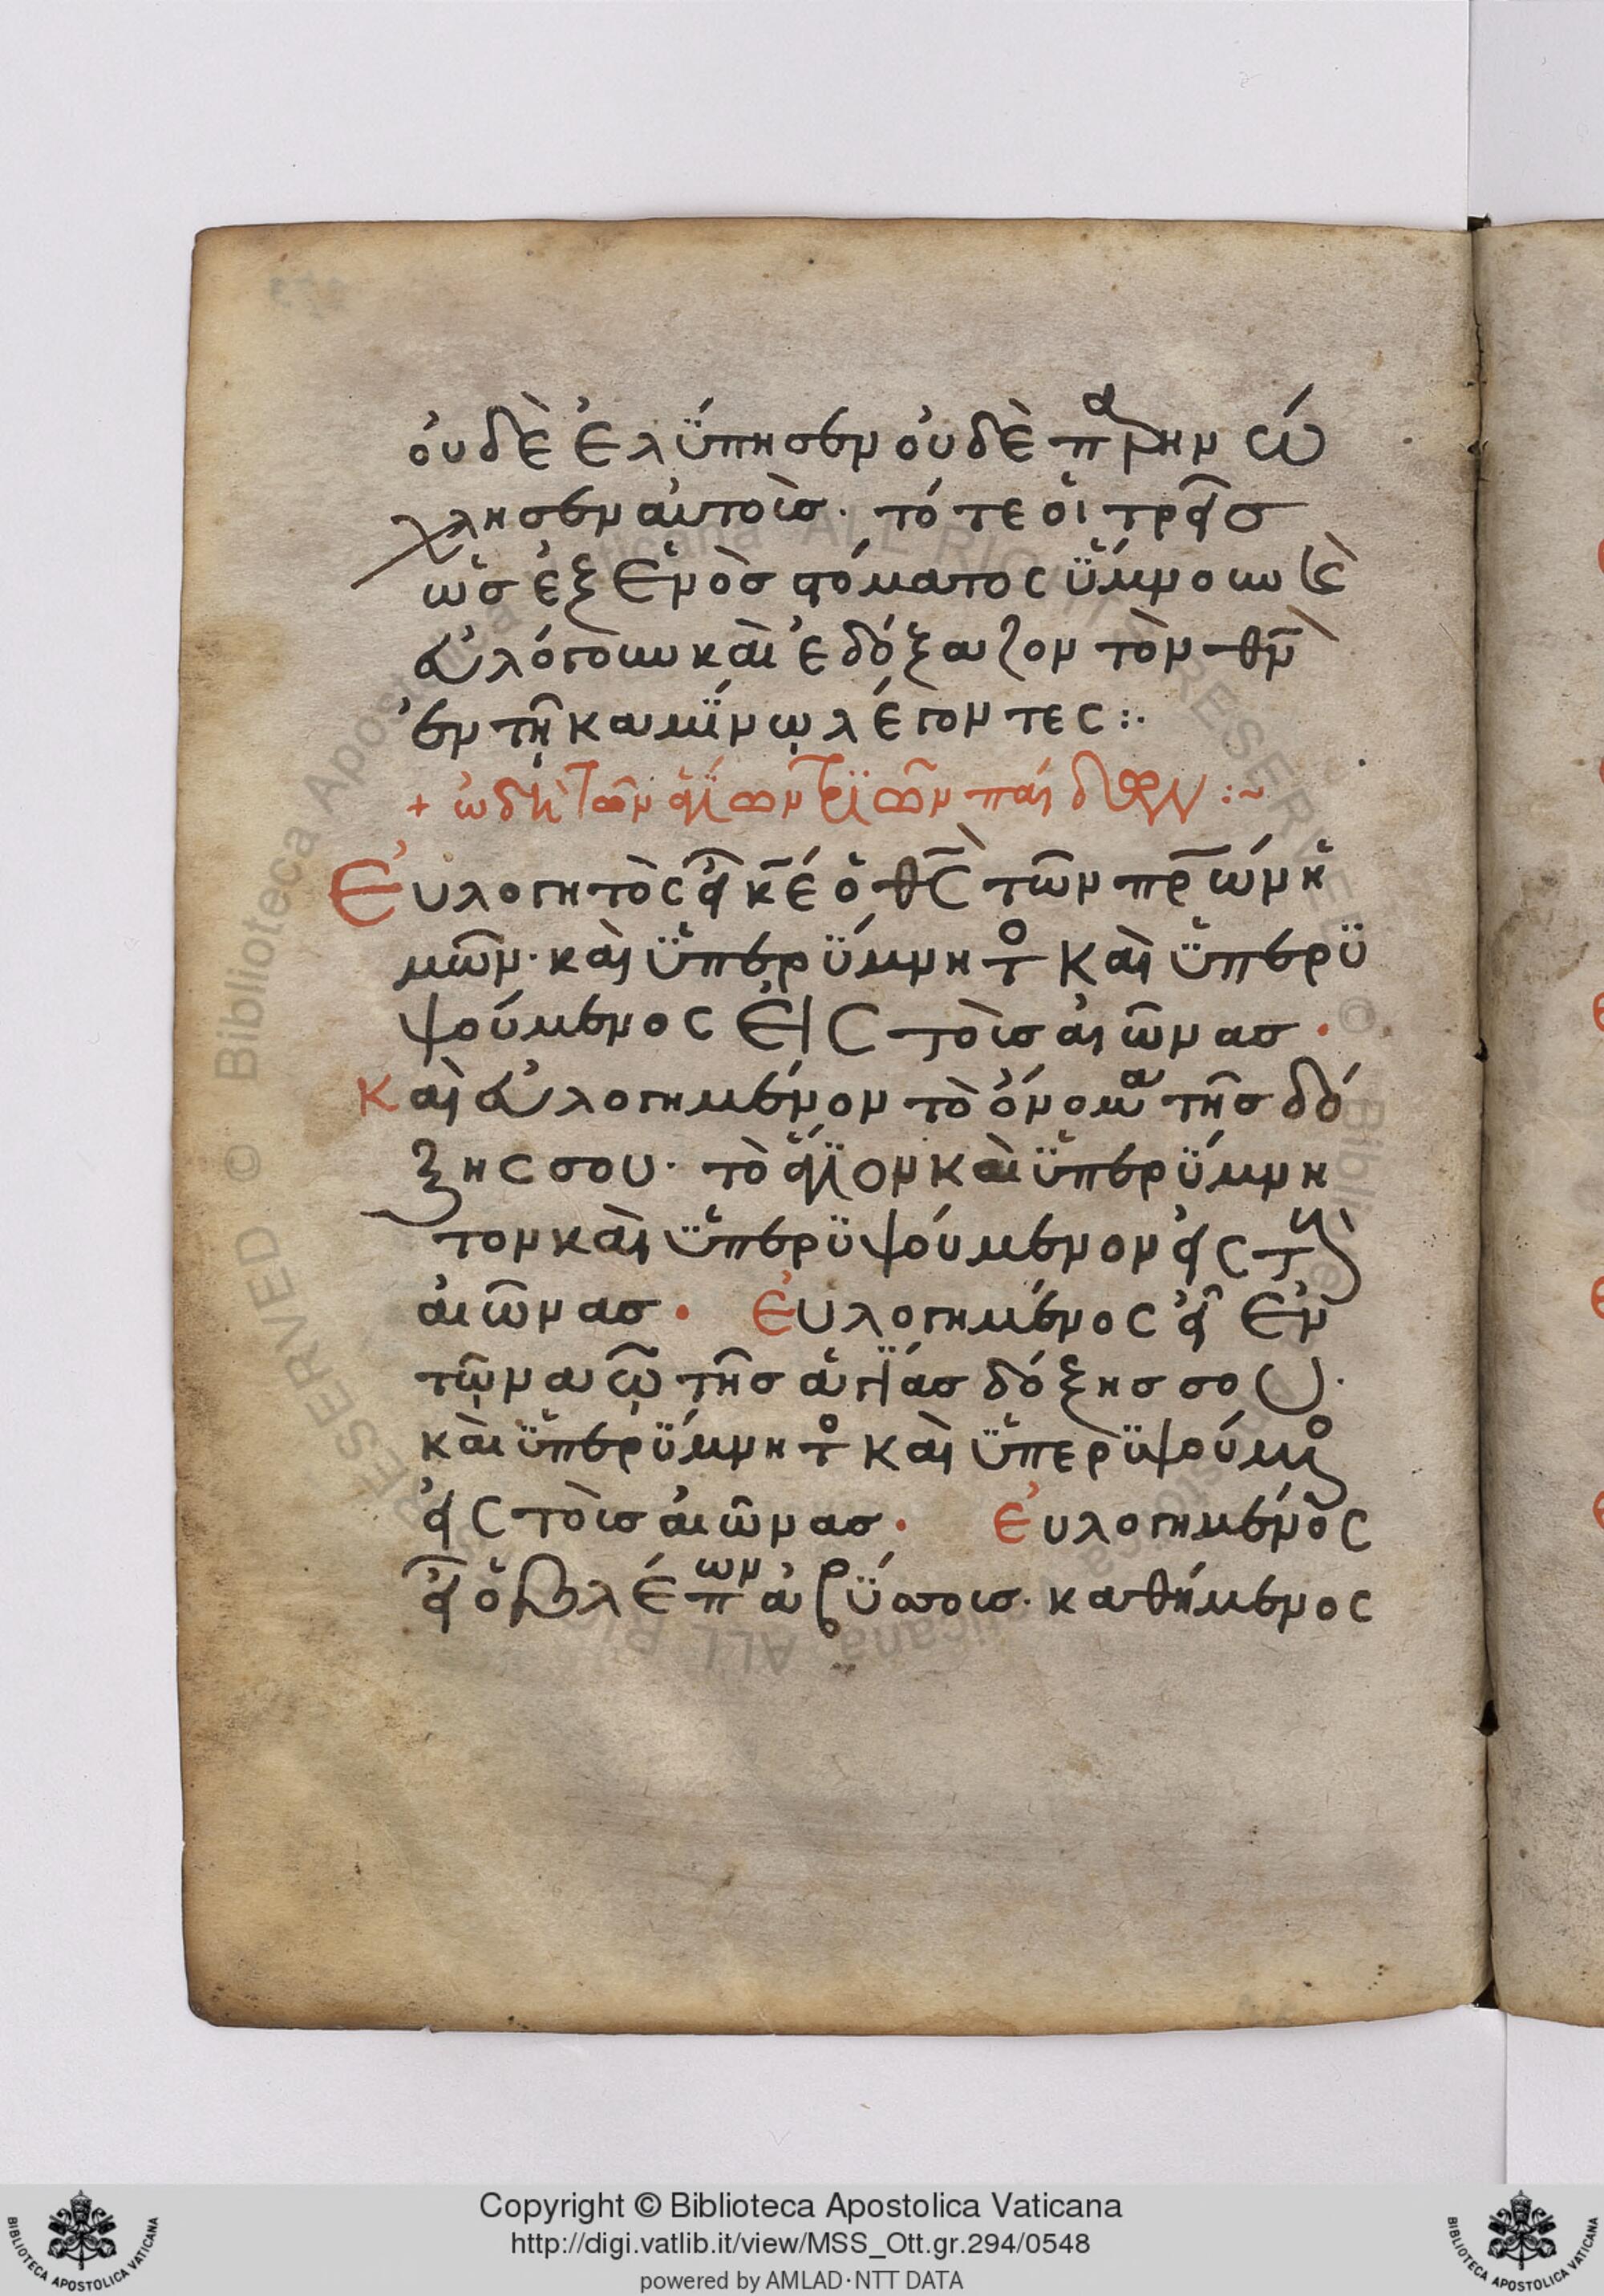 οὐδὲ ἐλΰπησεν οὐδὲ παρην ώ
χλησεν αὐτοὶσ· τότε οἱ τρεῖσ
ὡσ ἐξ ἑνὸσ στόματος ὕμνουν κὲ
εὐλόγουν καὶ ἐδόξαζον τὸν θν̅
ἐν τῆ καμΐνω λέγοντες :·
+ ὠδὴ τῶν ἁγίων τριῶν παίδων :~
Ἐυλογητὸς εἶ κ̅ε ὁ θ̅ς τῶν πρ̅ων ἡ
μῶν· καὶ ὑπερύμνητο καὶ ὑπερϋ
ψούμενος εἰς τοὺσ αἰῶνασ ·
Καὶ εὐλογημένον τὸ ὄνομα τῆσ δό
ξης σου· τὸ ἅγϊον καὶ ὑπερύμνη
τον καὶ ὑπερϋψούμενον εἰς τοὺς
αἰῶνασ · Ἐυλογημένος εἶ ἐν
τῶ ναῶ τῆσ ἁγίασ δόξησ σου·
καὶ ὑπερύμνητο καὶ ὑπερϋψούμενο
εἰς τοὺσ αἰῶνασ · Ἐυλογημένος
εἶ ὁ βλέπων ἀβύσσουσ· καθήμενος
Copyright © Biblioteca Apostolica Vaticana
http://digi.vatlib.it/view/MSS_Ott.gr.294/0548
powered by AMLAD·NTT DATA
BIBLIOTECA APOSTOLICA VATICANA
BIBLIOTECA APOSTOLICA VATICANA